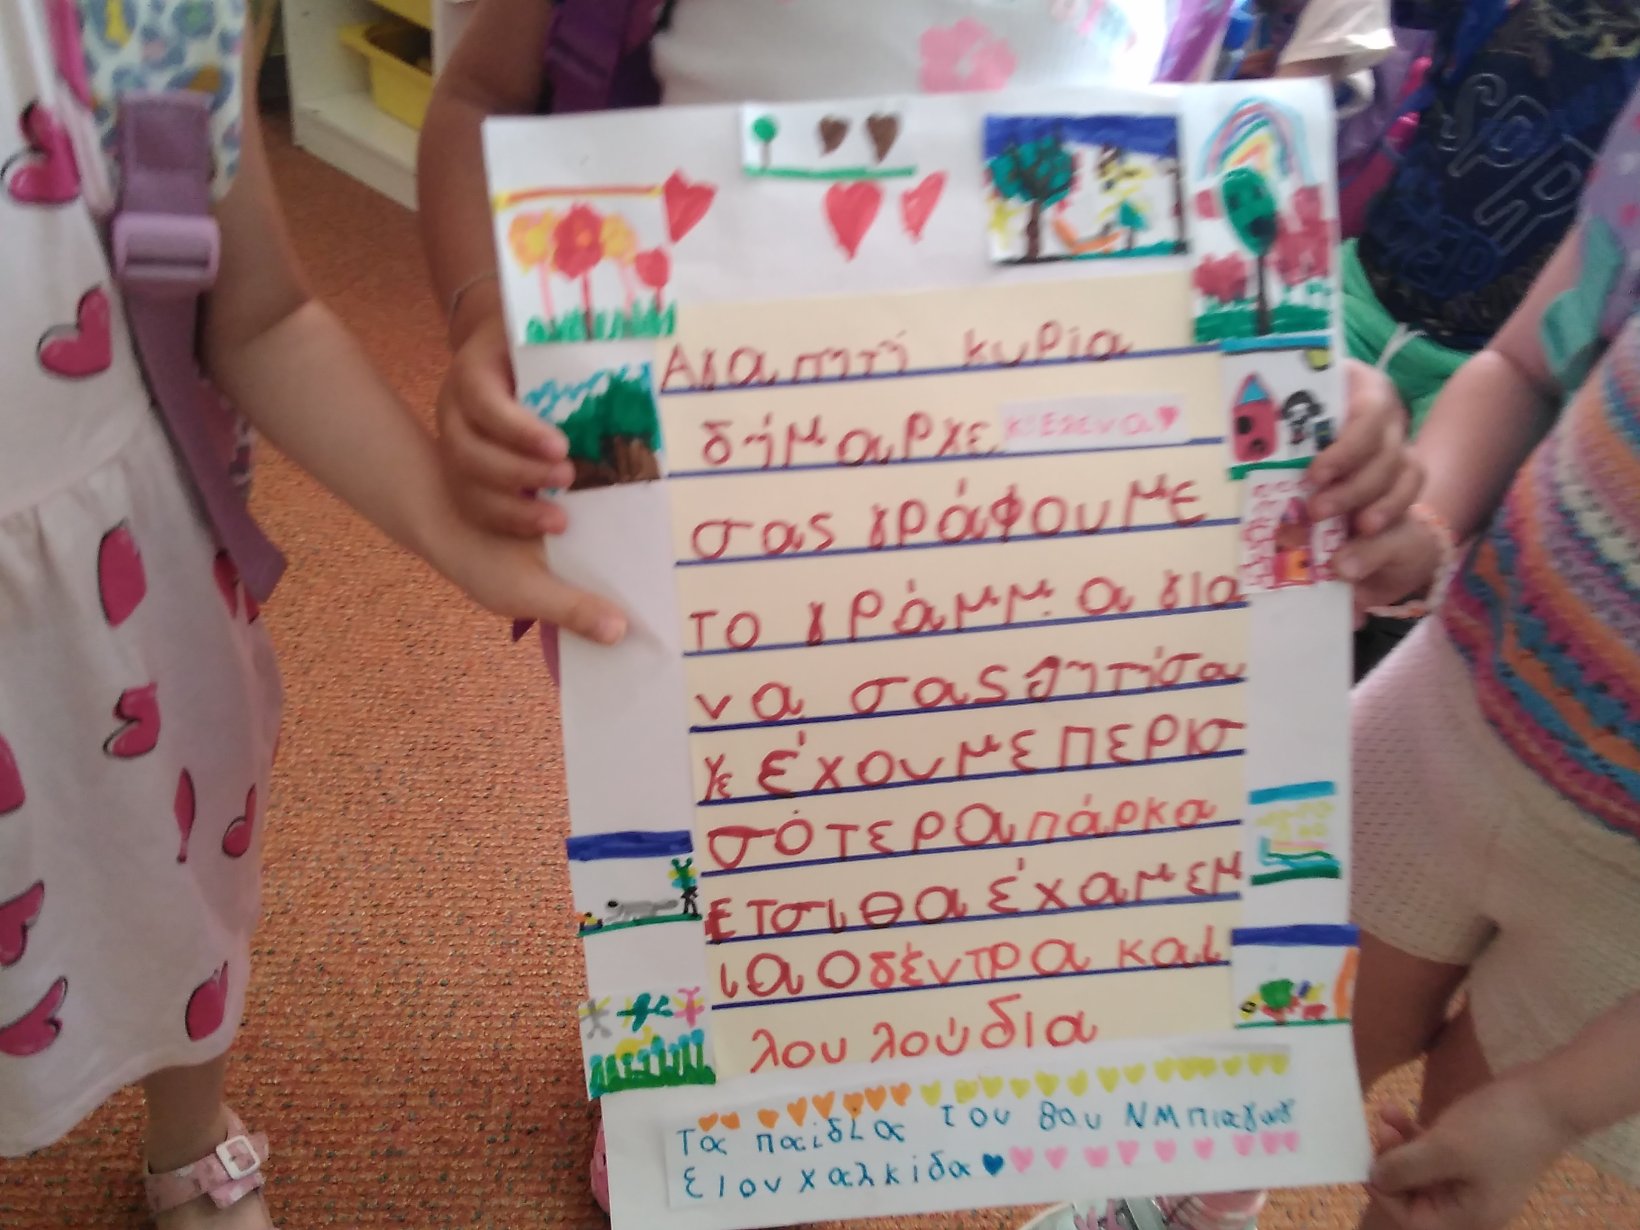 Αγαπητή κυρία
δήμαρχε κι Έλενα
σας γράφουμε
το γράμμα για
να σας ζητήσα
με έχουμε περισ
σότερα πάρκα
Ετσι θα έχαμεμ
ιαο δέντρα και
λουλούδια
Τα παιδια του 8ου ΝΜπιαγωγ
ειου χαλκιδα